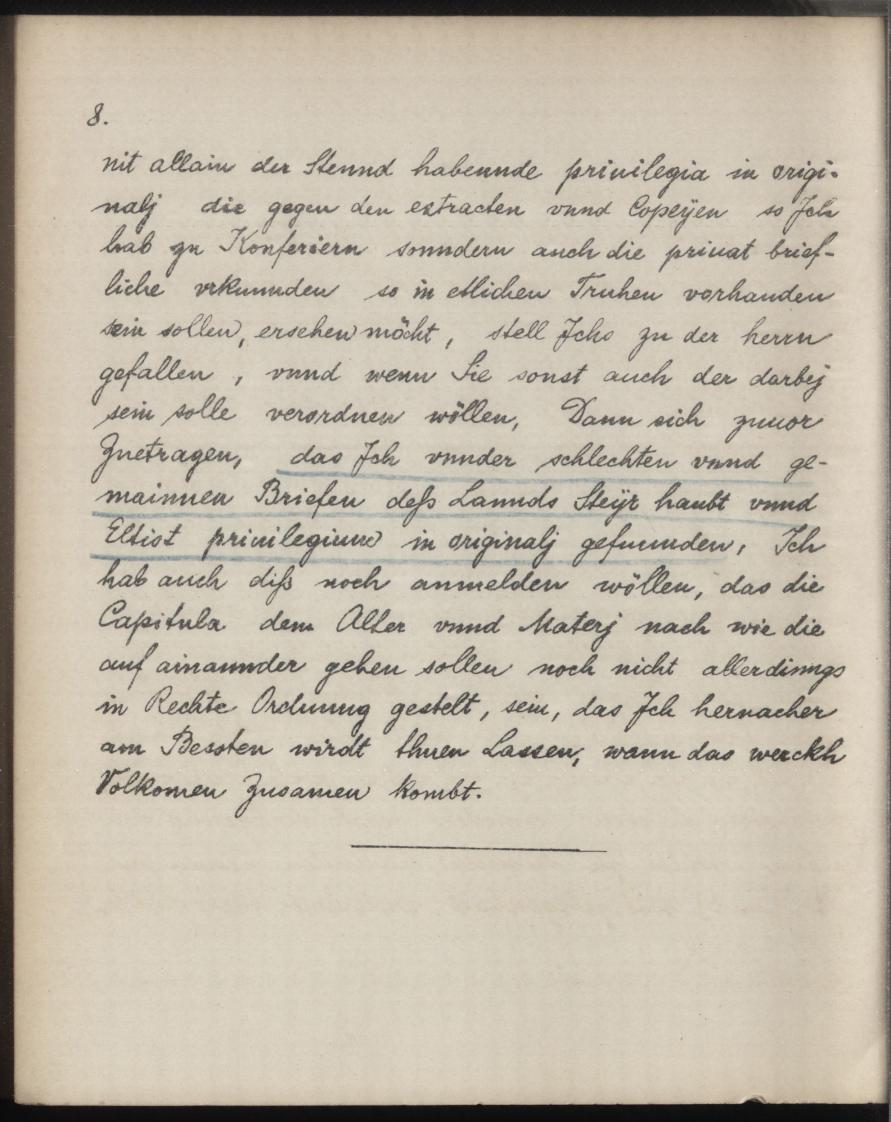 8.
nit allain der Stennd habennde priuilegia in origi-
nalj die gegen den extracten vnnd Copeÿen so Ich
hab zu Konferiern sonndern auch die priuat brief-
liche vrkunnden so in etlichen Truhen vorhanden
sein sollen, ersehen möcht, stell Ichs zu der herrn
gefallen, vnnd wenn Sie sonst auch der darbej
sein solle verordnen wöllen, Dann sich zuuor
Zuetragen, das Ich vnnder schlechten vnnd ge-
mainnen Briefen deß Lannds Steÿr haubt vnnd
Eltist priuilegium in originalj gefunnden, Ich
hab auch diß noch anmelden wöllen, das die
Capitula dem Alter vnnd Materj nach wie die
auf ainannder gehen sollen noch nicht allerdinngs
in Rechte Ordnung gestelt, sein, das Ich hernacher
am Bessten wirdt thuen Lassen, wann das werckh
Volkomen Zusamen kombt.